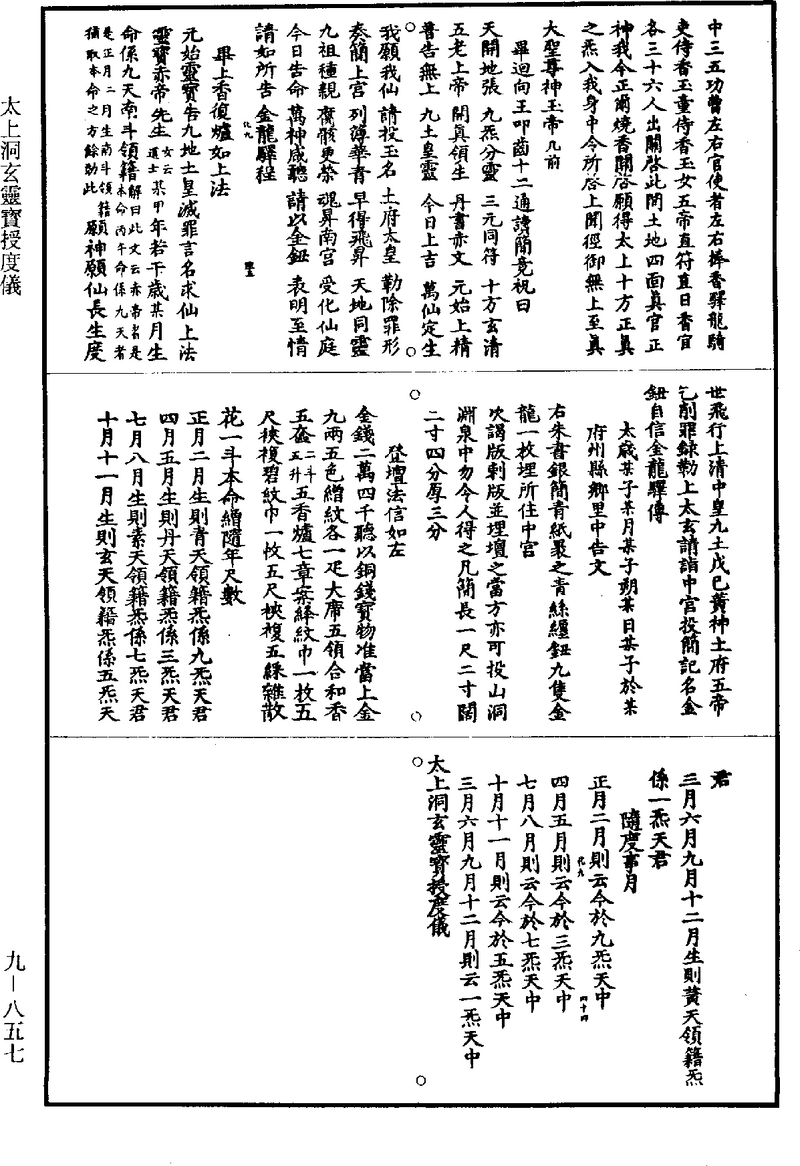 中三五功曹左右官使者左右捧香驛龍騎
吏侍香玉童侍香玉女五帝直符直日香官
各三十六人出關啓此間土地四面真官正
神我今正爾燒香關啓願得太上十方正真
之炁入我身中令所啓上聞徑御無上至真
大聖尊神玉帝几前
畢迴向王叩齒十二通讀簡竟祝曰
天開地張 九炁分靈 三元同符 十方玄清
五老上帝 開真領生 丹書赤文 元始上精
普告無上 九土皇靈 今日上吉 萬仙定生
我願我仙 請投玉名 土府太皇 勒除罪形
奏簡上宮 列簿華青 早得飛昇 天地同靈
九祖種親 腐骸更榮 魂昇南宮 受化仙庭
今日告命 萬神咸聽 請以金鈕 表明至情
請如所告 金龍驛程
畢上香復爐如上法
元始靈寶告九地土皇滅罪言名求仙上法
靈寶赤帝先生女云道士某甲年若干歲某月生
命係九天南斗領籍解曰此文云赤帝者是本命丙午命係九天者
是正月二月生南斗領籍攝取本命之方餘効此願神願仙長生度
世飛行上清中皇九土戊己黃神土府五帝
乞削罪錄勒上太玄請詣中宮投簡記名金
鈕自信金龍驛傳
太歲某子某月某子朔某日某子於某
府州縣鄉里中告文
右朱書銀簡青紙裹之青絲纏鈕九隻金
龍一枚埋所住中宮
吹謁版刺版並埋壇之當方亦可投山洞
淵泉中勿令人得之凡簡長一尺二寸闊
二寸四分厚三分
登壇法信如左
金錢二萬四千聽以銅錢寶物准當上金
九兩五色繒紋各一疋大席五領合和香
五奩二斗五升五香爐七章案絳紋巾一枚五
尺袂複碧紋巾一枚五尺袂複五綵雜散
花一斗本命繒隨年尺數
正月二月生則青天領籍炁係九炁天君
四月五月生則丹天領籍炁係三炁天君
七月八月生則素天領籍炁係七炁天君
十月十一月生則玄天領籍炁係五炁天
君
三月六月九月十二月生則黃天領籍炁
係一炁天君
隨度事月
正月二月則云今於九炁天中
四月五月則云今於三炁天中
七月八月則云今於七炁天中
十月十一月則云今於五炁天中
三月六月九月十二月則云一炁天中
太上洞玄靈寶授度儀
太上洞玄靈寶授度儀
九—八五七